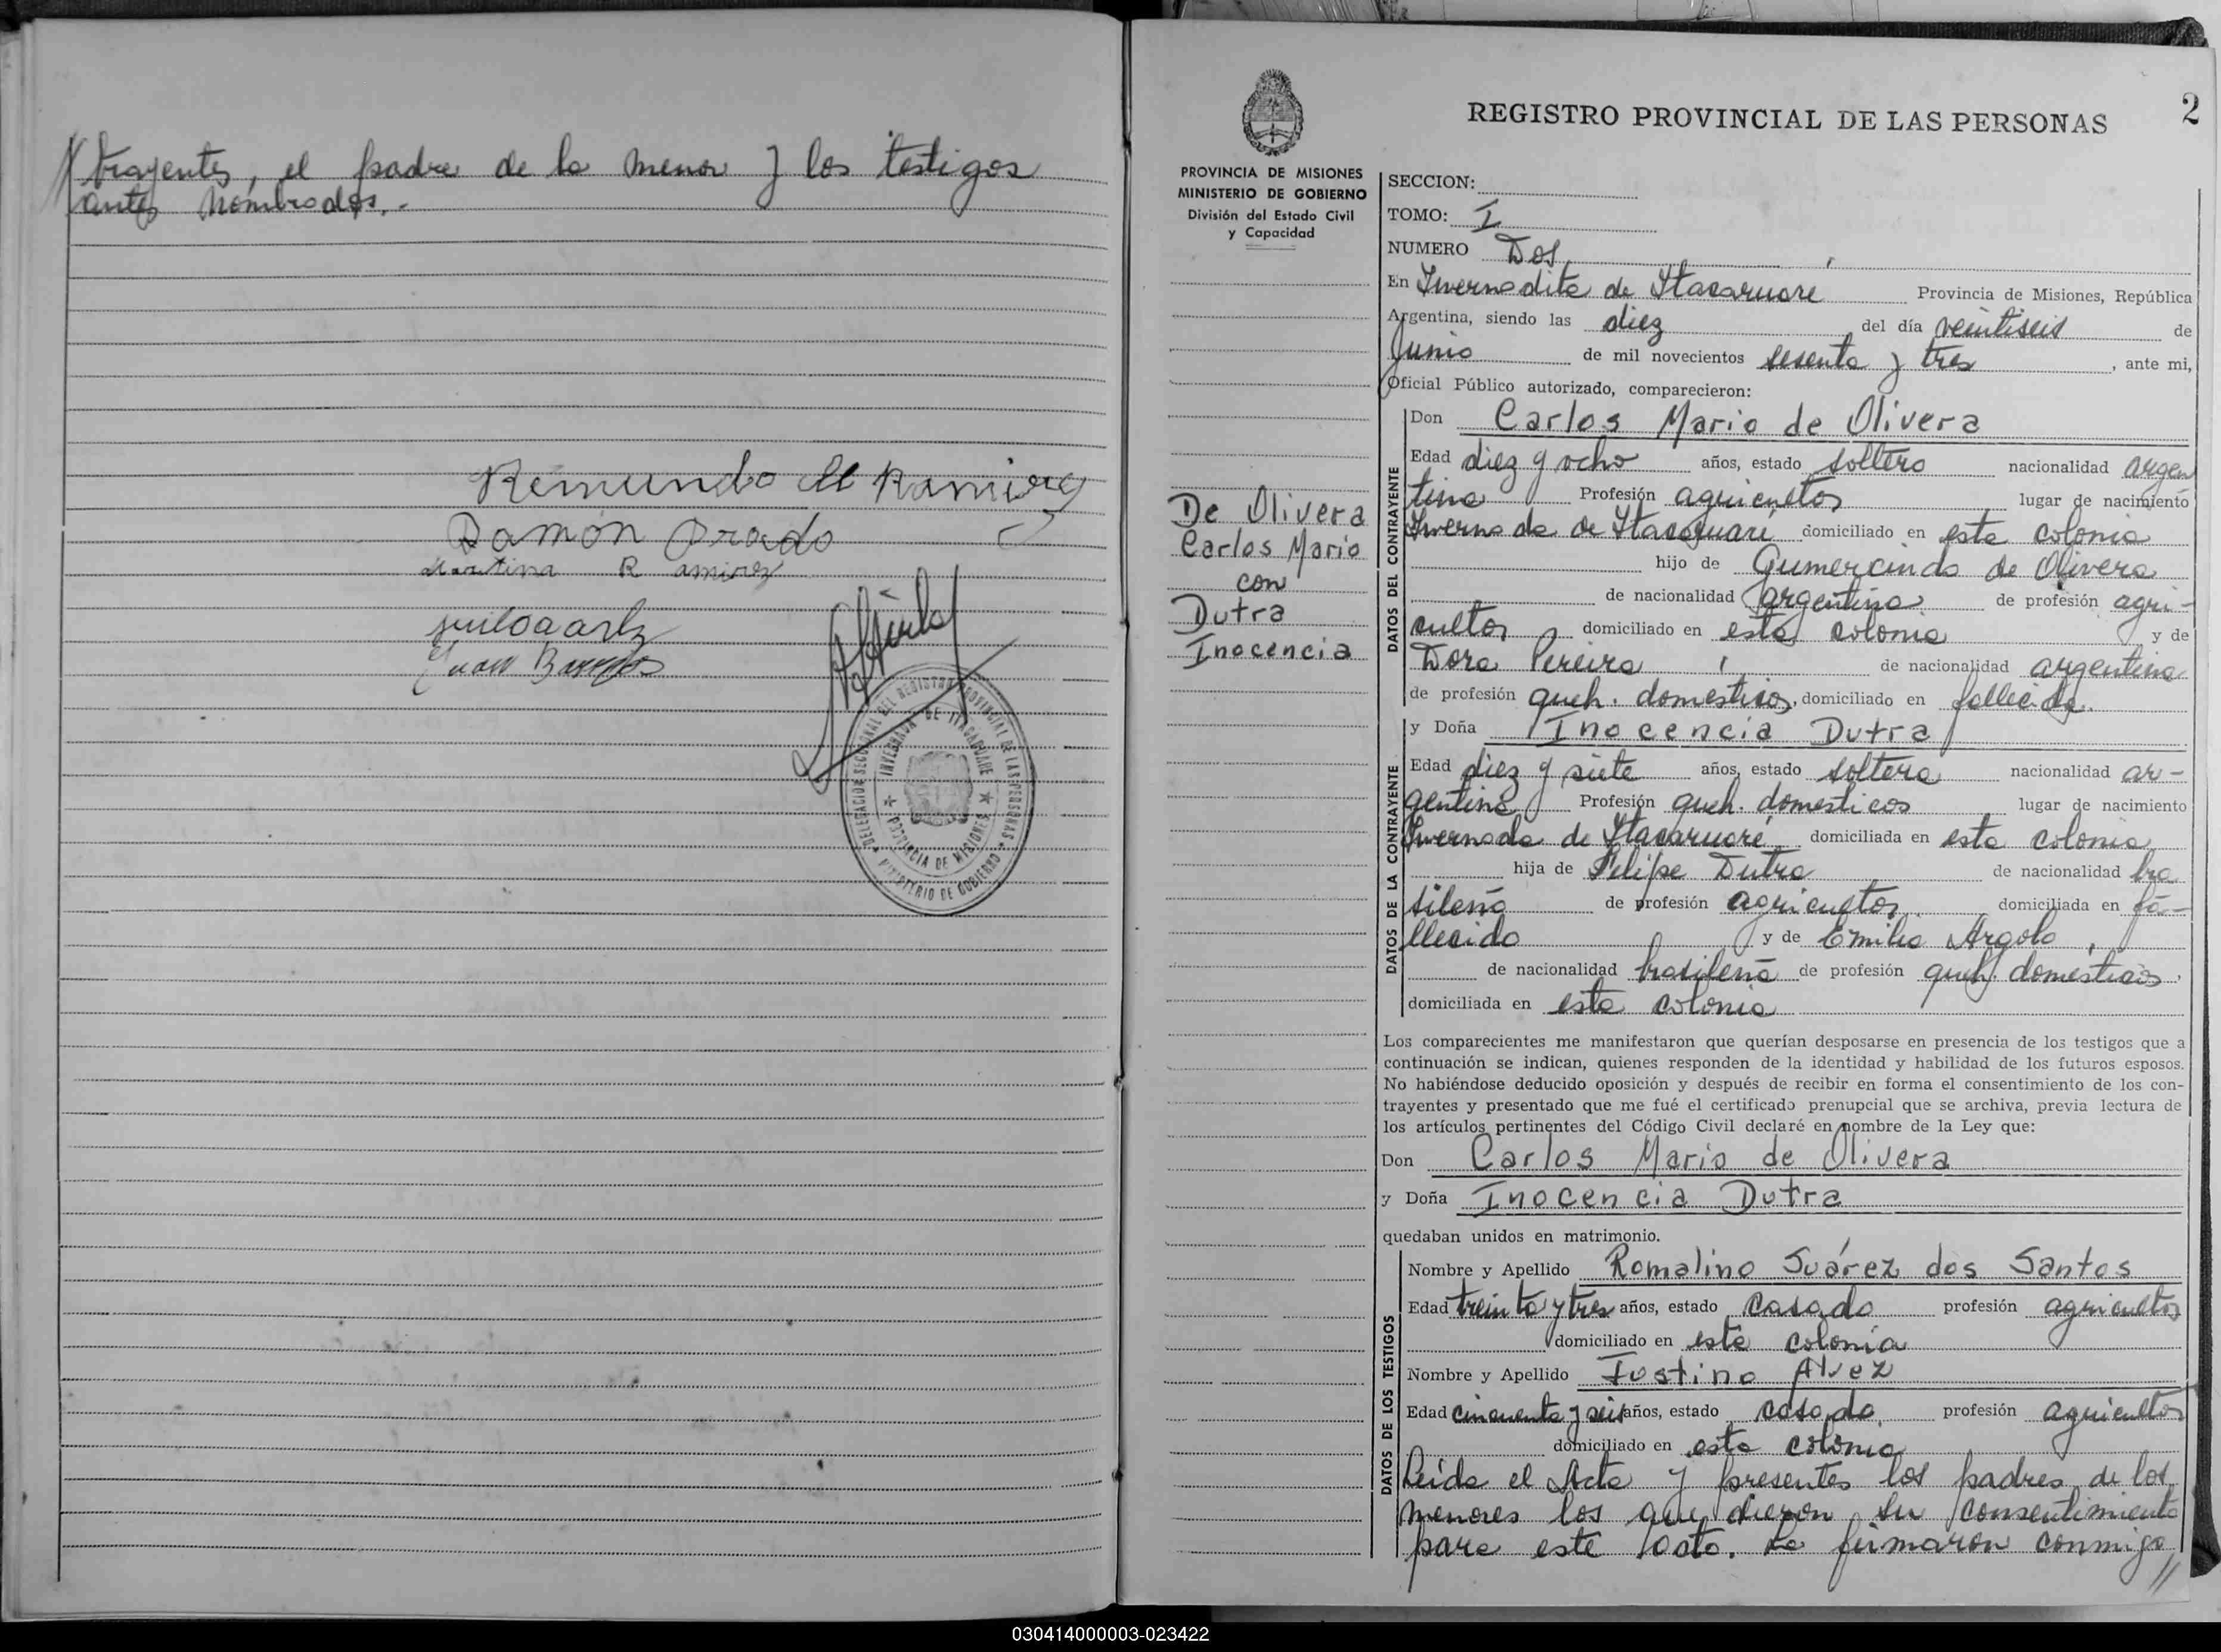 // trayentes, el padre de la menor y los testigos
antes nombrados.-
Remundo Ramirez
Ramón Prado
Martina Ramirez
Juan
DELEGACION SECCIONAL DEL REGISTRO PROVINCIAL DE LAS PERSONAS
MINISTERIO DE GOBIERNO
INVERNADA DE ITACARUARE
PROVINCIA DE MISIONES
2
REGISTRO PROVINCIAL DE LAS PERSONAS
PROVINCIA DE MISIONES
MINISTERIO DE GOBIERNO
División del Estado Civil
y Capacidad
De Olivera
Carlos Mario
con
Dutra
Inocencia
SECCION:
TOMO: I
NUMERO Dos
En Invernadita de Itacaruaré Provincia de Misiones, República
Argentina, siendo las diez del día veintiseis de
Junio de mil novecientos sesenta y tres, ante mi,
Oficial Público autorizado, comparecieron:
DATOS DEL CONTRAYENTE
Don Carlos Mario de Olivera
Edad diez y ocho años, estado soltero nacionalidad argen
tina Profesión agricultor lugar de nacimiento
Invernada de Itacaruaré domiciliado en esta colonia
hijo de Gumercindo de Olivera
de nacionalidad argentina de profesión agri-
cultor domiciliado en esta colonia y de
Dora Pereira, de nacionalidad argentina
de profesión queh. domesticos, domiciliado en fallecida.
DATOS DE LA CONTRAYENTE
y Doña Inocencia Dutra
Edad diez y siete años, estado soltera nacionalidad ar-
gentina Profesión queh. domesticos lugar de nacimiento
Invernada de Itacaruaré, domiciliada en esta colonia
hija de Felipe Dutra de nacionalidad bra
sileña de profesión agricultor domiciliada en fa-
llecido y de Emilia Argolo,
de nacionalidad brasileña de profesión queh. domésticos
domiciliada en esta colonia
Los comparecientes me manifestaron que querían desposarse en presencia de los testigos que a
continuación se indican, quienes responden de la identidad y habilidad de los futuros esposos.
No habiéndose deducido oposición y después de recibir en forma el consentimiento de los con-
trayentes y presentado que me fué el certificado prenupcial que se archiva, previa lectura de
los artículos pertinentes del Código Civil declaré en nombre de la Ley que:
Don Carlos Mario de Olivera
y Doña Inocencia Dutra
quedaban unidos en matrimonio.
DATOS DE LOS TESTIGOS
Nombre y Apellido Romalino Suárez dos Santos
Edad treinta y tres años, estado casado profesión agricultor
domiciliado en esta colonia
Nombre y Apellido Fostino Alvez
Edad cincuenta y seis años, estado casado profesión agricultor
domiciliado en esta colonia
Leida el Acta y presentes los padres de los
menores los que dieron su consentimiento
para este acto. La firmaron conmigo
//
030414000003-023422